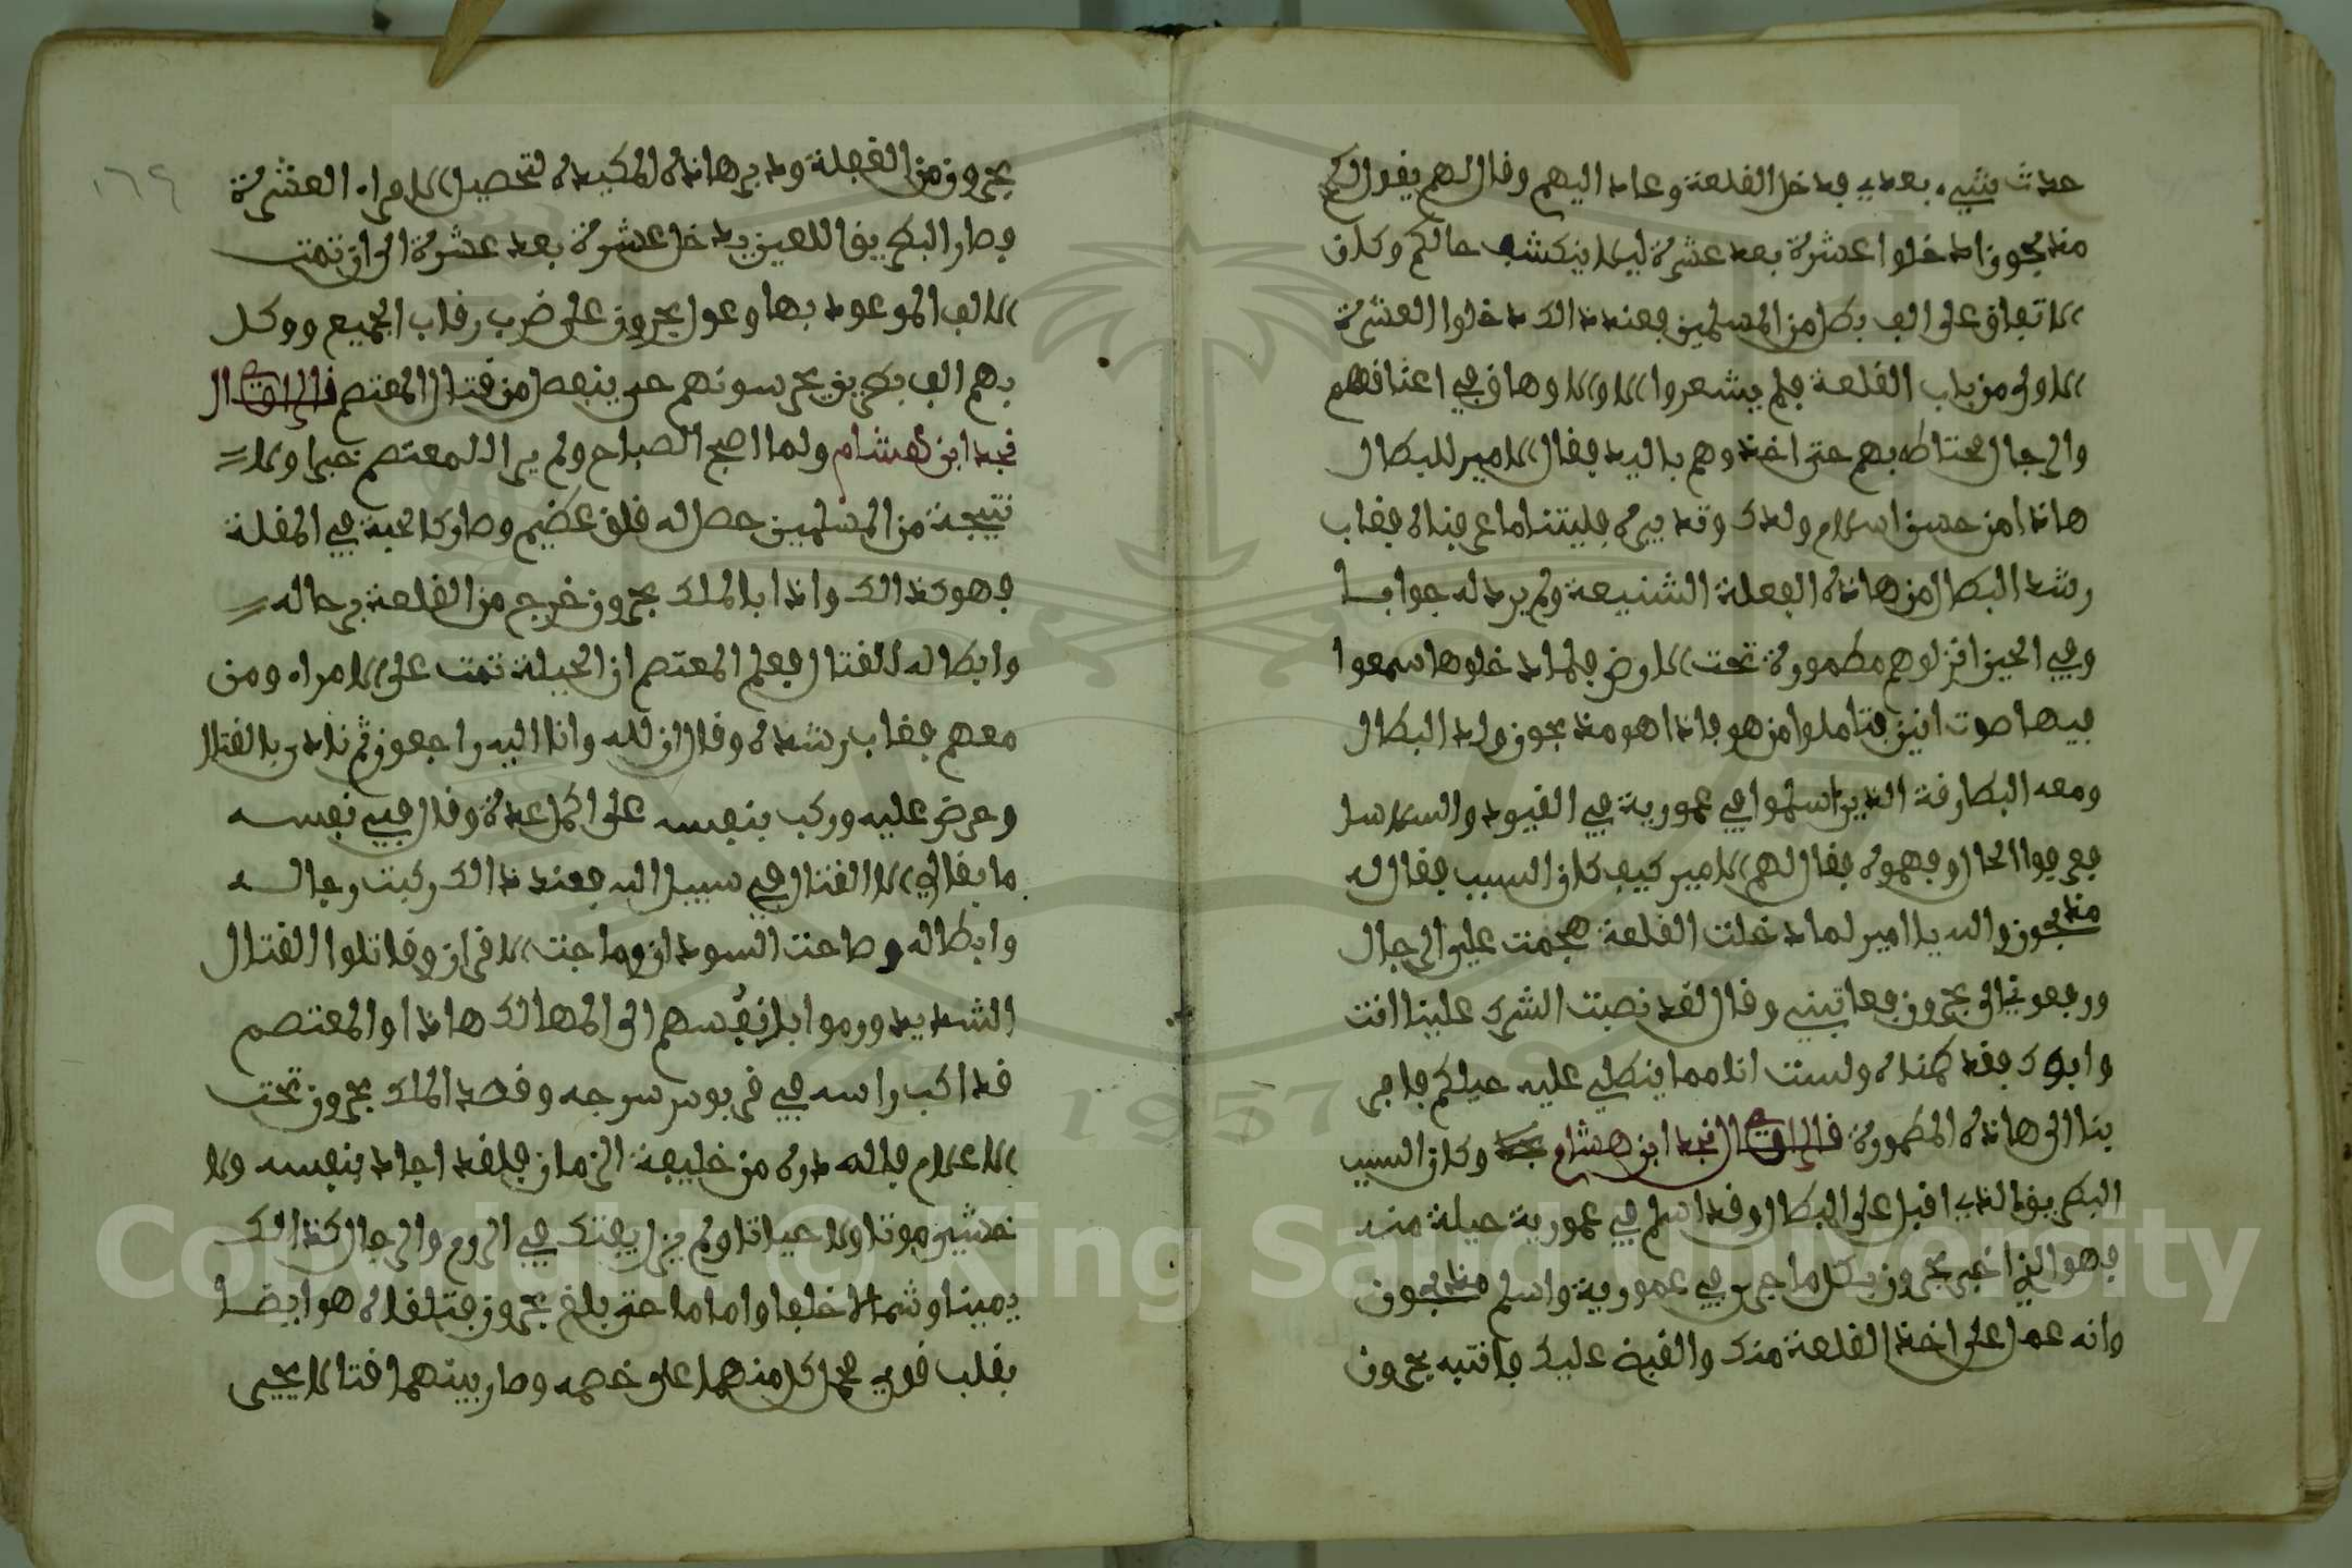 حدث شيء بعدي فدخل القلعة وعاد اليهم وقال لهم يقول لكم
مذبحون ادخلوا عشرة بعد عشرة ليلا ينكشف حالكم وكان
الاتفاق على الف بطل من المسلمين فعند ذالك دخلوا العشرة
الاولى من باب القلعة فلم يشعروا الا والاوهاق في اعناقهم
والرجال محتاطه بهم حتى اخذوهم باليد فقال الامير للبطال
هاذا من حسن اسلام ولدك وتدبيره فليتنا ما عرفناه فغاب
رشد البطال من هاذه الفعلة الشنيعة ولم يرد له جوابا
وفي الحين انزلوهم مطمورة تحت الارض فلما دخلوها سمعوا
فيها صوت انين فتاملوا من هو فاذا هو مذبحون ولد البطال
ومعه البطارقة الذين اسلموا في عمورية في القيود والسلاسل
فعرفوا الحال وفهموه فقال لهم الامير كيف كان السبب فقال له
مذبحون والله يا امير لما دخلت القلعة هجمت علي الرجال
ورفعوني الى بحرون فعاتبني وقال لقد نصبت الشرك علينا انت
وابوك فقد كمنناه ولست انا مما ينطلي عليه حيلكم فامر
بنا الى هاذه المطمورة قال الراوي نجد ابن هشام وكان السبب
البطريق الذي اقبل على البطال وقد اسلم في عمورية حيلة منه
فهو الذي اخبر بحرون بكل ما جرى في عمورية واسلم مذبحون
وانه عمل على اخذ القلعة منك والقبض عليك فانتبه بحرون
١٦٩
بحرون من الغفلة ودبر هاذه المكيدة لتحصيل الامراء العشرة
وصار البطريق اللعين يدخل عشرة بعد عشرة الى ان تمت
الالف الموعود بها وعول بحرون على ضرب رقاب الجميع ووكل
بهم الف بطريق يحرسونهم حتى ينفصل من قتال المعتصم قال الراوي
نجد ابن هشام ولما اصبح الصباح ولم ير المعتصم خبرا ولا
نتيجة من المسلمين حصل له قلق عظيم وصار كالحبة في المقلة
فهو كذالك واذا بالملك بحرون خرج من القلعة برجاله
وابطاله للقتال فعلم المعتصم ان الحيلة تمت على الامراء ومن
معهم فغاب رشده وقال ان لله وانا اليه راجعون ثم نادى بالقتال
وحرض عليه وركب بنفسه على اكمل عدة وقال في نفسه
ما بقا لي الا القتال في سبيل الله فعند ذالك ركبت رجاله
وابطاله وصاحت السودان وماجت الاقران وقاتلوا القتال
الشديد ورموا بانفسهم الى المهالك هاذا والمعتصم
قد اكب راسه في قربوس سرجه وقصد الملك بحرون تحت
الاعلام فلله دره من خليفة الزمان فلقد اجاد بنفسه ولا
خشي موتا ولا حياتا ولم يزل يفتك في الروم والرجال كذالك
يمينا وشمالا خلفا واماما حتى بلغ بحرون فتلقاه هو ايضا
بقلب قوي فحمل كل منهما على خصمه وصار بينهما قتالا يحيى
1957
Copyright © King Saud University